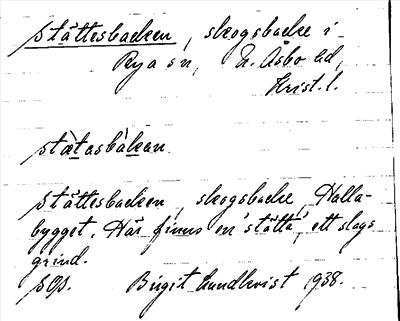 stättesbacken, skogsbacke i
Rya sn, N. Åsbo hd,
Krist. l.
stætasbakan.
stättesbacken, skogsbacke, Halla-
bygget. Här finns en "stätta", ett slags
grind.
Birgit Lundkvist 1938.